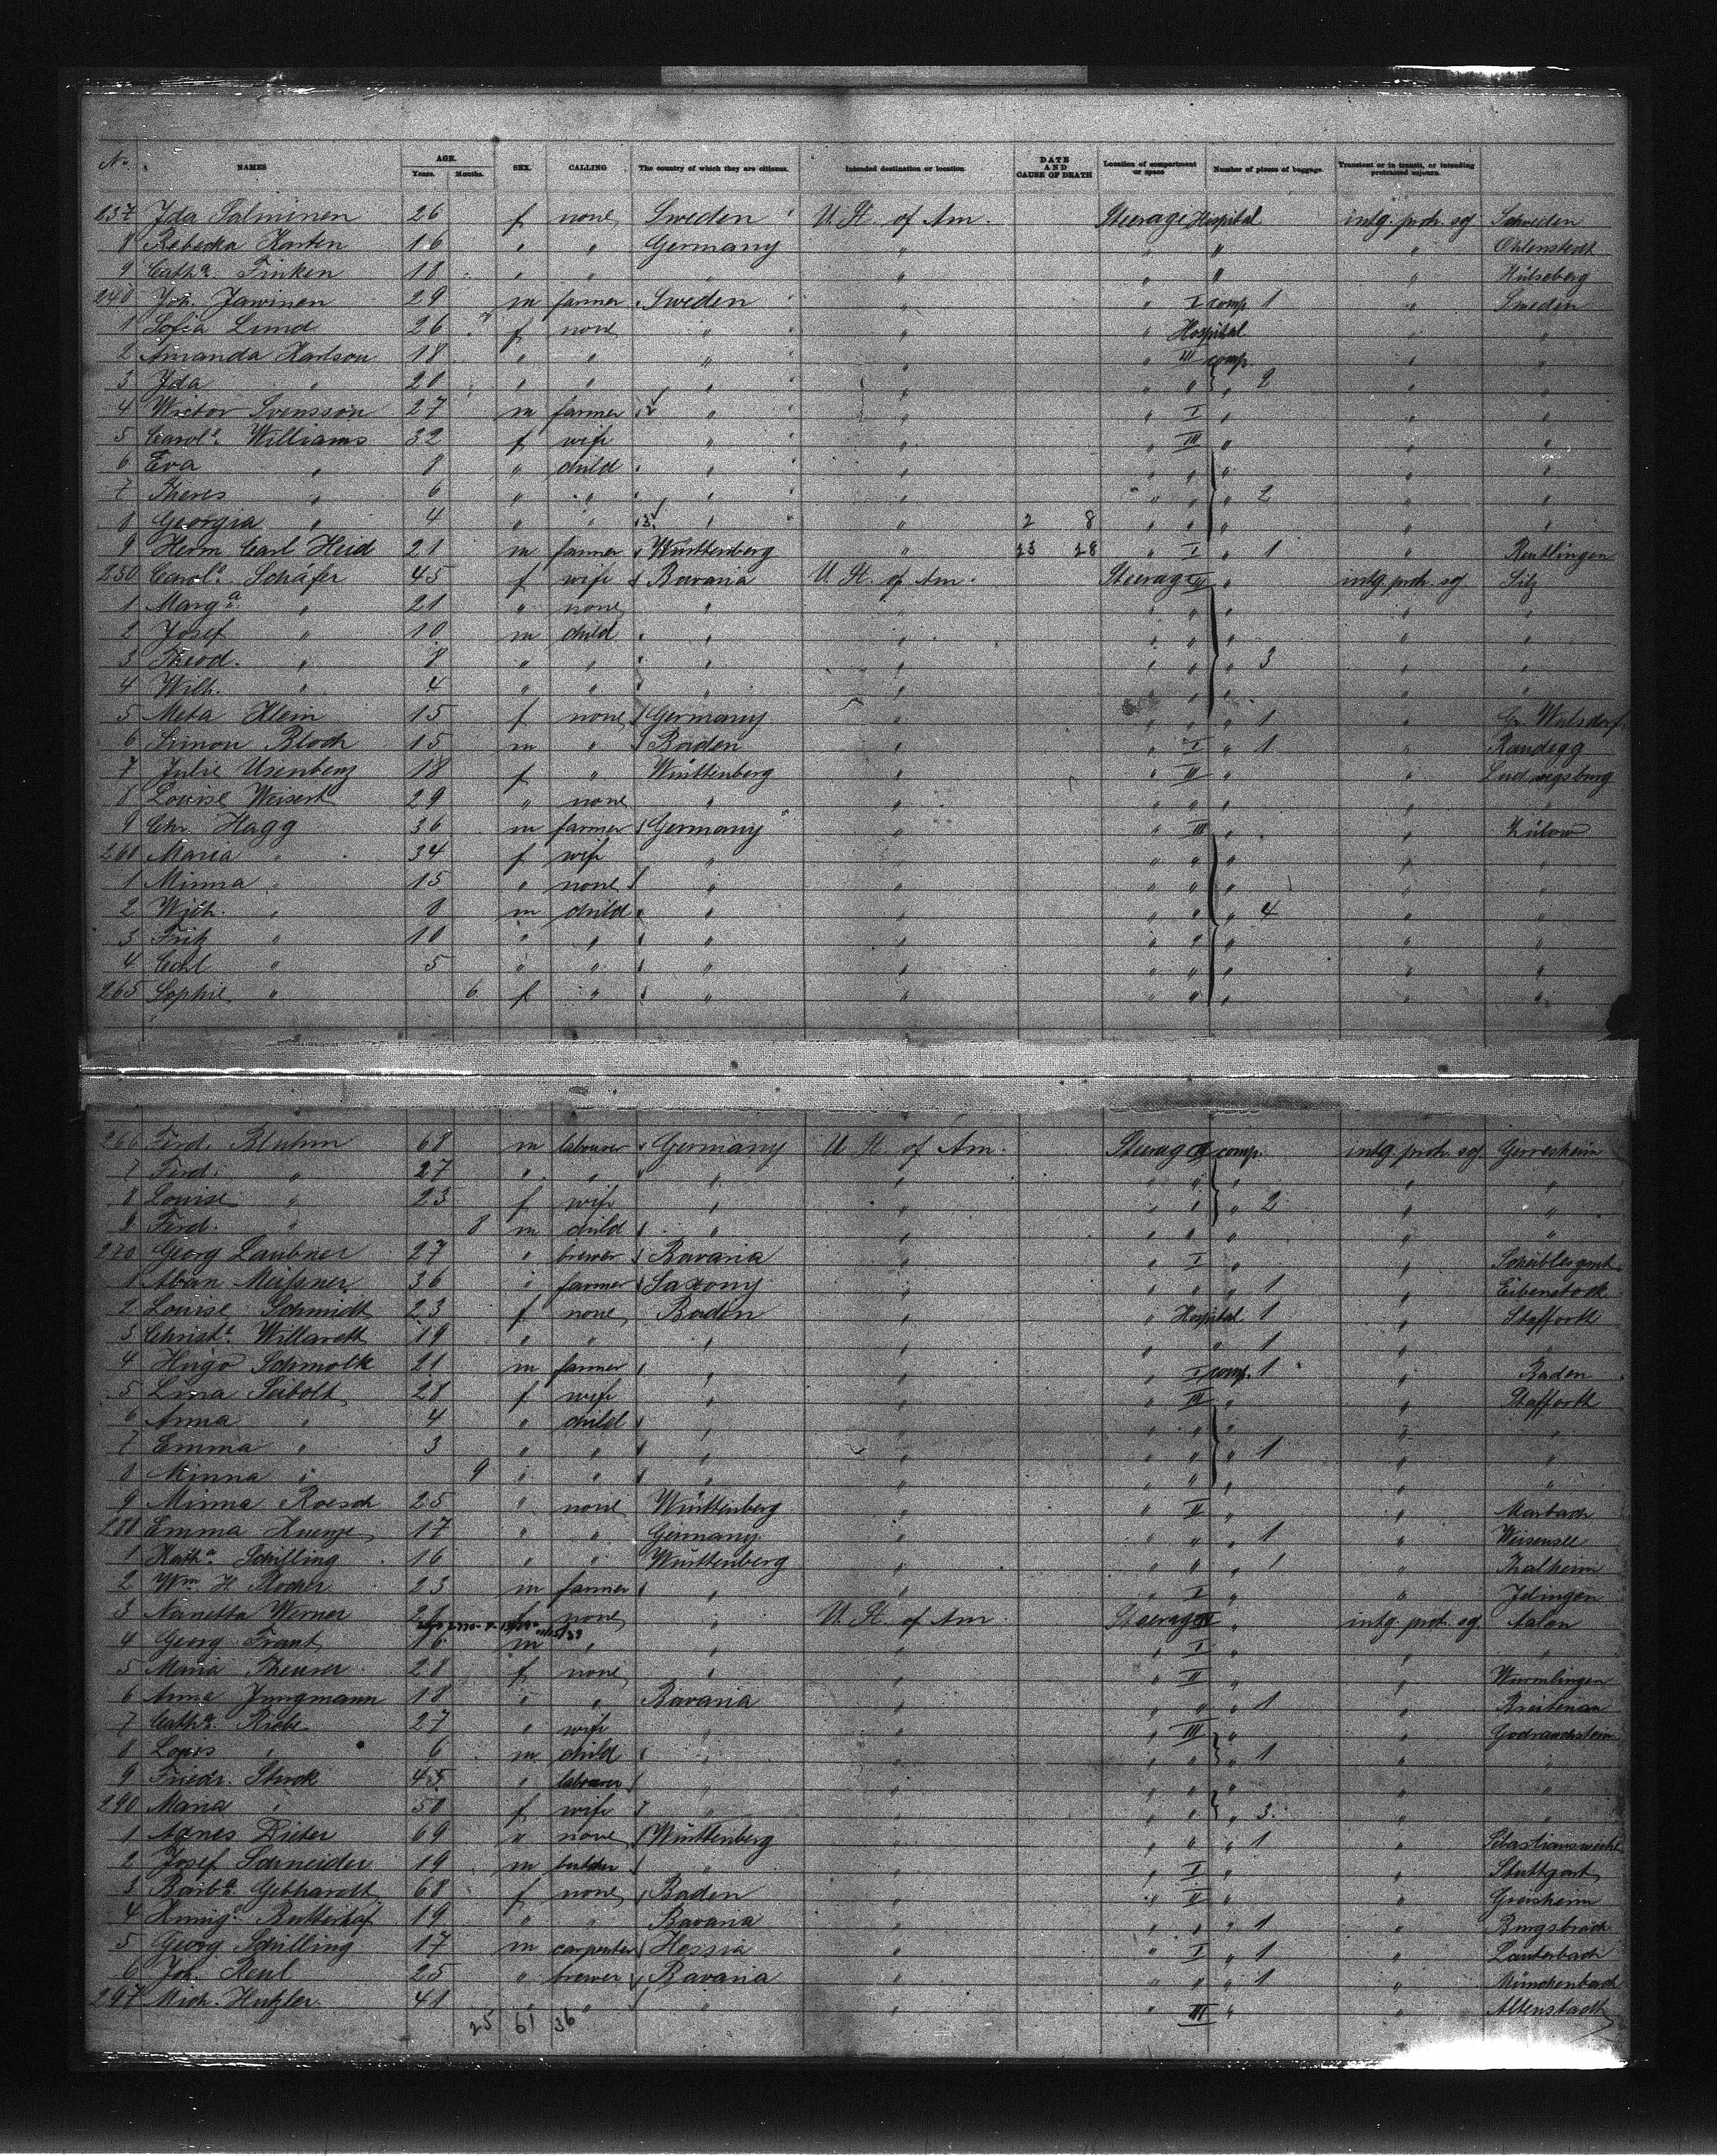 No. NAMES AGE. Years. Months. SEX. CALLING The country of which they are citizens. Intended destination or location DATE AND CAUSE OF DEATH Location of compartment or space Number of pieces of baggage Transient or in transit, or intending protracted sojourn.
237 Ida Salminen 26 f none Sweden U. St. of Am. Steerage Hospital intg. protr. soj Schweden
8 Rebecka Karten 16 " " Germany " " " " Ohlenstedt
9 Catha. Finken 18 " " " " " " " Hülseberg
240 Joh. Jawinen 29 m farmer Sweden " " I comp. 1 " Sweden
1 Sofia Lund 26 f none " " " Hospital " "
2 Amanda Karlson 18 " " " " " III comp. " "
3 Ida " 20 " " " " " " " 2 " "
4 Wictor Svensson 27 m farmer " " " I " " "
5 Carole. Williams 32 f wife " " " III " " "
6 Eva " 8 " child " " " " " " "
7 Theres " 6 " " " " " " " 2 " "
8 Georgia " 4 " " 3 " " 2 8 " " " " "
9 Herm Carl Heid 21 m farmer Württenberg " 23 28 " I " 1 " Reutlingen
250 Carola. Schäfer 45 f wife Bavaria U. St. of Am. Steerage II " intg. protr. soj Silz
1 Marga. " 21 " none " " " " " " "
2 Josef " 10 m child " " " " " " "
3 Theod. " 8 " " " " " " " 3 " "
4 Wilh. " 4 " " " " " " " " "
5 Meta Klein 15 f none Germany " " " " 1 " Gr. Wulsdorf
6 Simon Bloch 15 m " Baden " " I " 1 " Randegg
7 Julie Usenbenz 18 f " Württenberg " " II " " Ludwigsburg
8 Louise Weisert 29 " none " " " " " " "
9 Chr. Hagg 36 m farmer Germany " " III " " Zülow
260 Maria " 34 f wife " " " " " " "
1 Minna " 15 " none " " " " " " "
2 Wilh. " 8 m child " " " " " 4 " "
3 Fritz " 10 " " " " " " " " "
4 Carl " 5 " " " " " " " " "
265 Sophie " 6 f " " " " " " " "
266 Ferd. Bluhm 68 m labourer Germany U. St. of Am. Steerage comp. intg. protr. soj Gerresheim
7 Ferd. " 27 " " " " " " " " "
8 Louise " 23 f wife " " " " " 2 " "
9 Ferd. " 8 m child " " " " " " "
270 Georg Laubner 27 " brewer Bavaria " " I " "
1 Alban Meißner 36 " farmer Saxony " " " " 1 " Eibenstock
2 Louise Schmidt 23 f none Baden " " Hospital 1 " Stafforth
3 Christe. Willareth 19 " " " " " " 1 " "
4 Hugo Schmolk 21 m farmer " " " I comp. 1 " Baden
5 Lina Seibolt 28 f wife " " " III " " Stafforth
6 Anna " 4 " child " " " " " " "
7 Emma " 3 " " " " " " " 1 " "
8 Minna " 9 " " " " " " " " "
9 Minna Roesch 25 " none Württenberg " " II " " Marbach
280 Emma Kuenze 17 " " Germany " " " " 1 " Weisensee
1 Katha. Schilling 16 " " Württenberg " " " " 1 " Thalheim
2 Wm. H. Rocher 23 m farmer " " " I " " Jdingen
3 Nanetta Werner f none " U. St. of Am. Steerage II " intg. protr. soj Aalon
4 Georg Frank 16 m " " " " I " " "
5 Maria Theurer 28 f none " " " II " " Wurmlingen
6 Anna Jungmann 18 " " Bavaria " " " " 1 " Breitenau
7 Catha. Riebe 27 " wife " " " III " "
8 Louis " 6 m child " " " " " 1 " "
9 Friedr. Stock 45 " labourer " " " " " " "
290 Maria " 50 f wife " " " " " 3. " "
1 Agnes Dieter 69 " none Württenberg " " " " 1 " Sebastiansweiler
2 Josef Schneider 19 m butcher " " " I " " Stuttgart
3 Barba. Gebhardt 68 f none Baden " " II " " Greisheim
4 Kunig. Butterhof 19 " " Bavaria " " " " 1 " Burgebrach
5 Georg Schilling 17 m carpenter Hessia " " I " 1 " Lauterbach
6 Joh. Reul 25 " brewer Bavaria " " " " 1 " Münchenbach
297 Mich. Hutzler 41 " " " " " III " " Altenstadt
25 61 36